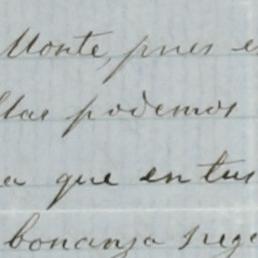 Monte, pues e
llas podemos
a que en tus
bonanza suge